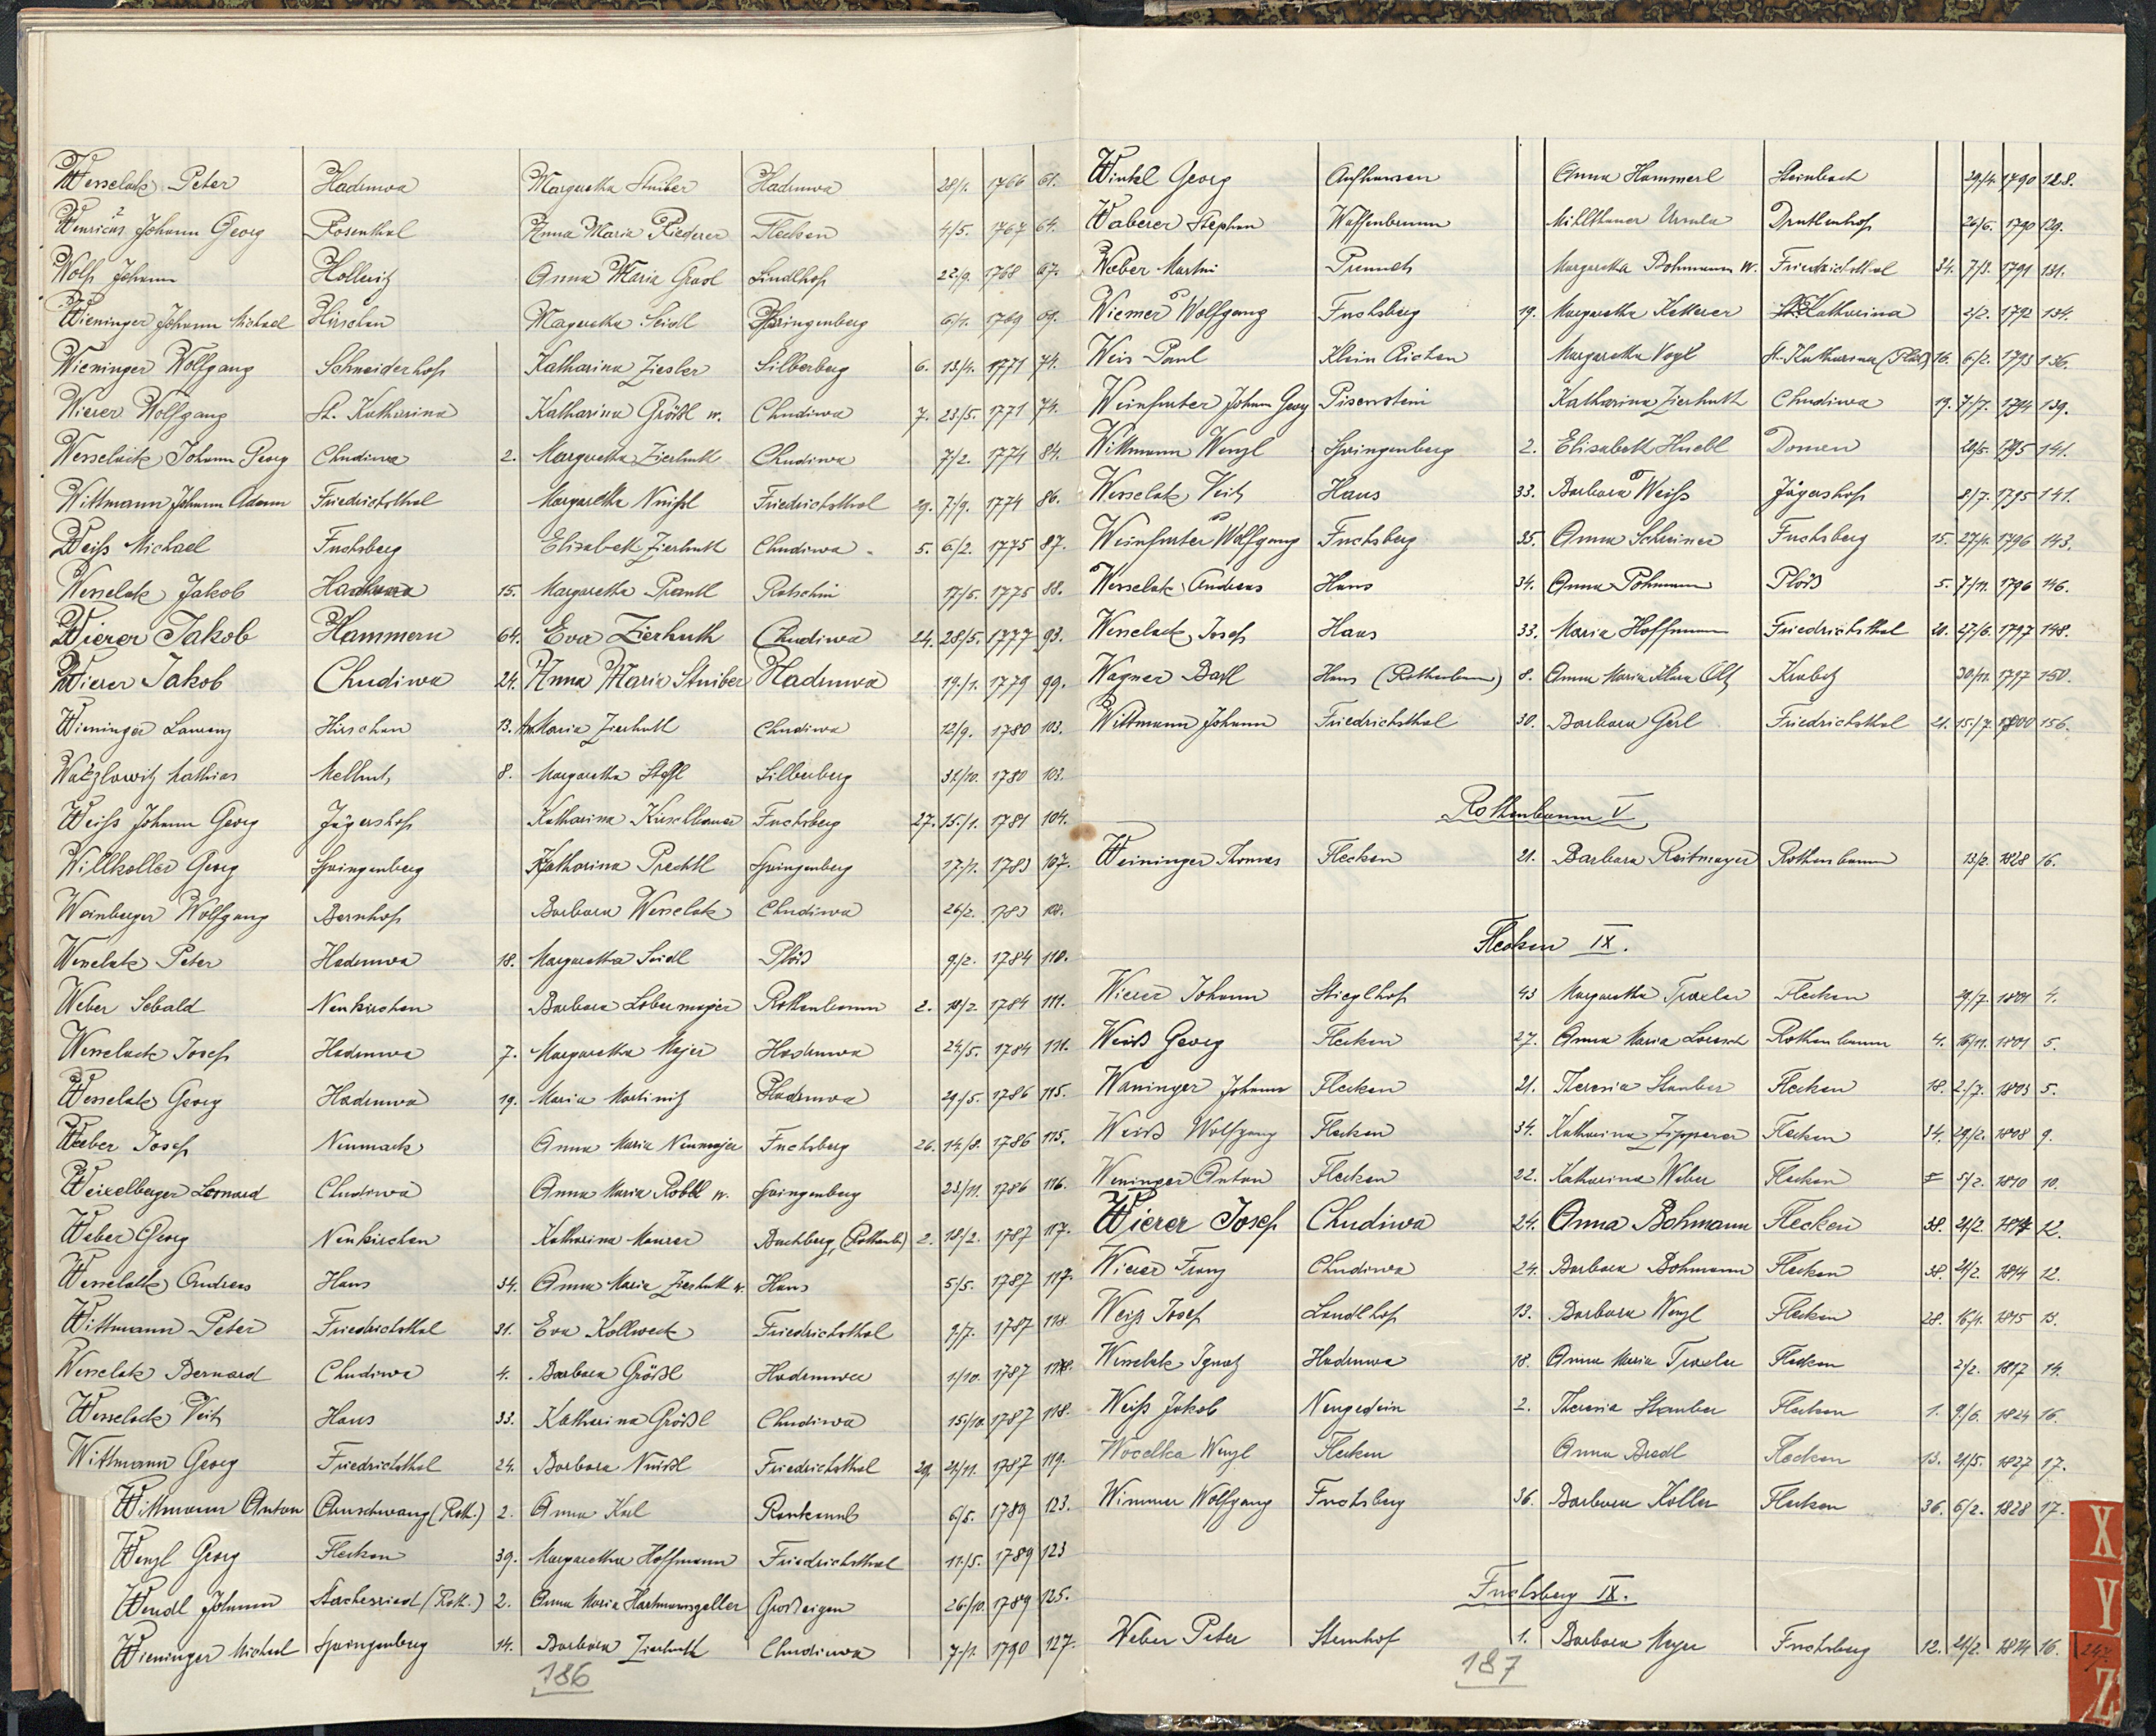 Wesselak Peter Hadruwa Margaretha Stuiber Hadruwa 28/1. 1766 61.
Johann Georg Rosenthal Anna Maria Riederer Flecken 4/5. 1767 64.
Wolf Johann Hollwitz Anna Maria Grasl Lindlhof 22/9. 1768 67.
Wieninger Johann Michael Hirschau Magaretha Seidl Springenberg 6/1. 1769 69.
Wieninger Wolfgang Schneiderhof Katharina Ziesler Silberberg 6. 13/4. 1771 74.
Wierer Wolfgang St. Katharina Katharina Größl w. Chudiwa 7. 23/5. 1771 74.
Wesselack Johann Georg Chudiwa 2. Margaretha Zierhuth Chudiwa 7/2. 1774 84.
Wittmann Johann Adam Friedrichsthal Margaretha Nuißl Friedrichsthal 29. 7/9. 1774 86.
Weiß Michael Fuchsberg Elisabeth Zierhuth Chudiwa 5. 6/2. 1775 87.
Wesselak Jakob Hadruwa 15. Margaretha Prantl Rotschin 17/5. 1775 88.
Wierer Jakob Hammern 64. Eva Zierhuth Chudiwa 24. 28/5. 1777 93.
Wierer Jakob Chudiwa 24. Anna Maria Stuiber Hadruwa 19./1. 1779 99.
Wieninger Lorenz Hirschau 13. An. Maria Zierhuth Chudiwa 12/9. 1780 103.
Watzlowitz Mathias Melhut, 8. Margaretha Steffl Silberberg 31/10. 1780 103.
Weiß Johann Georg Jägershof Katharina Kirschbauer Fuchsberg 27. 15/1. 1781 104.
Willkoller Georg Springenberg Katharina Prechtl Springenberg 17/1. 1783 107.
Weinberger Wolfgang Bernhof Barbara Wesselak Chudiwa 26/2. 1783 108.
Wesselak Peter Hadruwa 18. Margaretha Seidl Plöß 9./2. 1784 110.
Weber Sebald Neukirchen Barbara Lobermayer Rothenbaum 2. 10/2. 1784 111.
Wesselack Josef Hadruwa 7. Margaretha Majer Hadruwa 24/5. 1784 111.
Wesselak Georg Hadruwa 19. Maria Martinitz Hadruwa 29./5. 1786 115.
Weber Josef Neumark Anna Maria Neumajer Fuchsberg 26. 14/8. 1786 115.
Weixelberger Leonard Chudiwa Anna Maria Robl w. Springenberg 23/11. 1786 116.
Weber Georg Neukirchen Katharina Maurer Buchberg, (Rothenb.) 2. 18/2. 1787 117.
Wesselak Andreas Haus 34. Anna Maria Zierhuth w. Haus 5/5. 1787 117.
Wittmann Peter Friedrichsthal 31. Eva Kollweck Friedrichsthal 9/7. 1787 118.
Wesselak Bernard Chudiwa 4. Barbara Größl Hadruwa 1/10. 1787 118.
Wesselack Veit Haus 33. Katharina Größl Chudiwa 15/10. 1787 118.
Wittmann Georg Friedrichsthal 24. Barbara Nuißl Friedrichsthal 29. 21/11. 1787 119.
Wittmann Anton Arnschwang (Roth.) 2. Anna 6/5. 1789 123.
Wenzl Georg Flecken 39. Margaretha Hoffmann Friedrichsthal 11./5. 1789 123
Wendl Johann Stachesried (Roth.) 2. Anna Maria Hartmannsgeller Großaigen 26/10. 1789 125.
Wieninger Michael Springenberg 14. Barbara Zierhuth Chudiwa 7./1. 1790 127.
186
Winkl Georg Aufhausen Anna Hammerl Steinbach 29/4. 1790 128.
Waberer Stephan Waffenbrunn Mühlbauer Ursula 26/6. 1790 129.
Weber Martin Prennet Margaretha Bohmann w. Friedrichsthal 34. 7/3. 1791 131.
Wiemer Wolfgang Fuchsberg 19. Margaretha Ketterer St. Katharina 2/2. 1792 134.
Weis Paul Klein Aichen Margaretha Vogl St. Katharina 16. 6/2. 1793 136.
Weinfurter Johann Georg Katharina Zierhuth Chudiwa 19. 7/7. 1794 139.
Wittmann Wenzl Springenberg 2. Elisabeth Huebl Donau 20/5. 1795 141.
Wesselak Veit Haus 33. Barbara Weiß Jägershof 8/7. 1795 141.
Weinfurter Wolfgang Fuchsberg 35. Anna Schreiner Fuchsberg 15. 27/1. 1796 143.
Wesselak Andreas Haus 34. Anna Pohmann Plöß 5. 7/11. 1796 146.
Wesselack Josef Haus 33. Maria Hoffmann Friedrichsthal 20. 27/6. 1797 148.
Wagner Bartl Haus (Rothenbaum) 8. Anna Maria Klara 30/11. 1797 150.
Wittmann Johann Friedrichsthal 30. Barbara Gerl Friedrichsthal 21. 15./7. 1800 156.
Rothenbaum V
Weininger Thomas Flecken 21. Barbara Reitmayer Rothenbaum 13/2. 1828 16.
Flecken IX.
Wierer Johann Stieglhof 43 Margaretha Traxler Flecken 29/7. 1801 4.
Weiß Georg Flecken 27. Anna Maria Rothenbaum 4. 16/11. 1801 5.
Waninger Johann Flecken 21. Theresia Stauber Flecken 18. 2./7. 1803 5.
Weiß Wolfgang Flecken 34. Katharina Zipperer Flecken 34. 29/2. 1808 9.
Weninger Anton Flecken 22. Katharina Weber Flecken 5/2. 1810 10.
Wierer Josef Chudiwa 24. Anna Bohmann Flecken 38. 21/2. 1814 12.
Wierer Franz Chudiwa 24. Barbara Bohmann Flecken 38. 21/2. 1814 12.
Weiß Josef Landlhof 13. Barbara Wenzl Flecken 28. 16/1. 1815 13.
Wesselak Ignatz Hadruwa 18. Anna Maria Traxler Flecken 2/2. 1817 14.
Weiß Jakob Neugedein 2. Theresia Stauber Flecken 1. 9./6. 1824 16.
Wocelka Wenzl Flecken Anna Bredl Flecken 13. 21/5. 1827 17.
Wimmer Wolfgang Fuchsberg 36. Barbara Koller Flecken 36. 6/2. 1828 17.
Fuchsberg IX.
Weber Peter Sternhof 1. Barbara Mayer Fuchsberg 12. 21/2. 1814 16.
187
X
Y
247.
Z